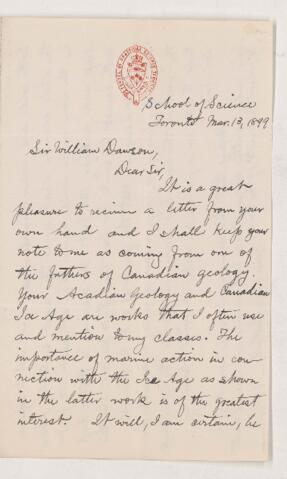 School of Science
Toronto Mar. 13, 1899
Sir William Dawson,
Dear Sir,
It is a great
pleasure to receive a letter from your
own hand and I shall keep your
note to me as coming from one of
the fathers of Canadian geology.
Your Acadian Geology and Canadian
Ice Age are works that I often use
and mention to my classes. The
importance of marine action in con-
nection with the Ice Age as shown
in the latter work is of the greatest
interest. It will, I am certain, be